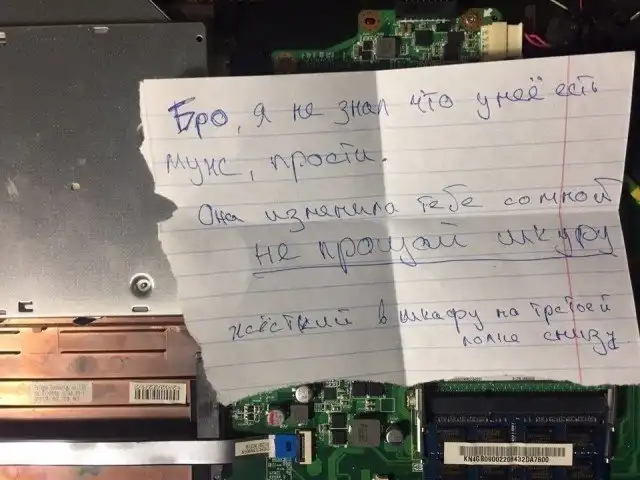 Бро, я не знал что у неё есть
мужс, прости.
Она изменила тебе сомной
не прощай шкуру
жёсткий в шкафу на третьей
полке снизу
KN4GB0900220B432DA7600